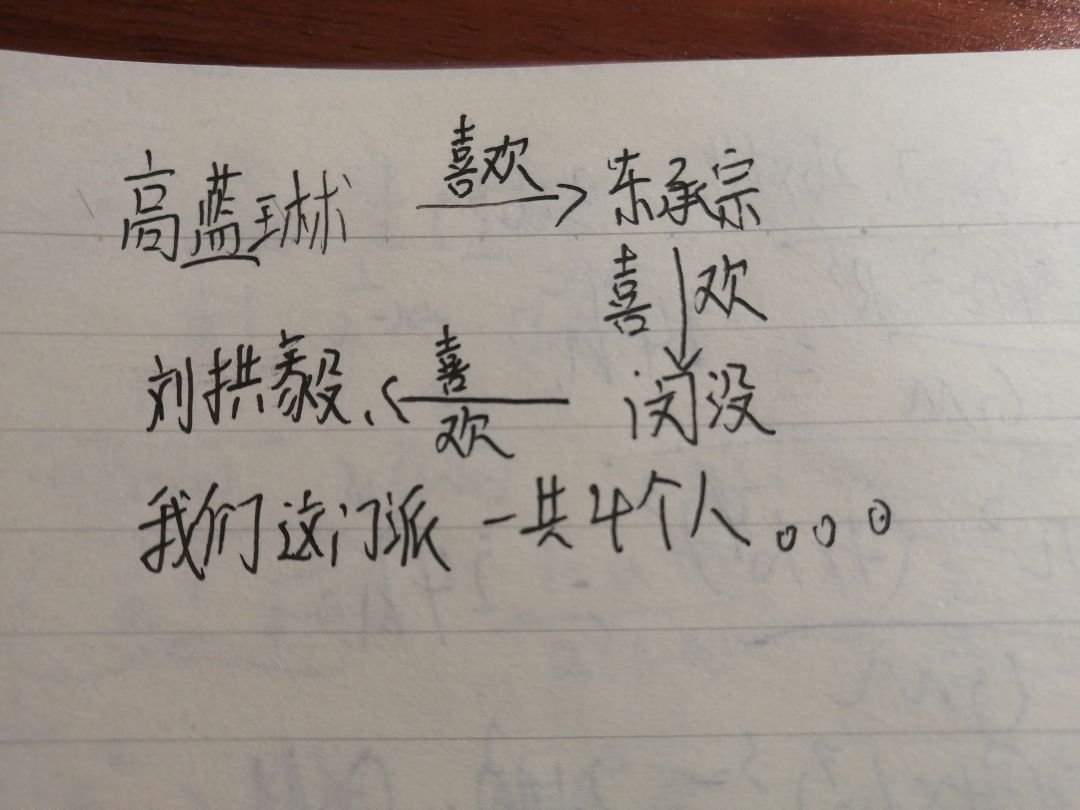 高蓝琳 喜欢 东承宗
喜欢
刘拱毅 喜欢 闵没
我们这门派一共4个人。。。